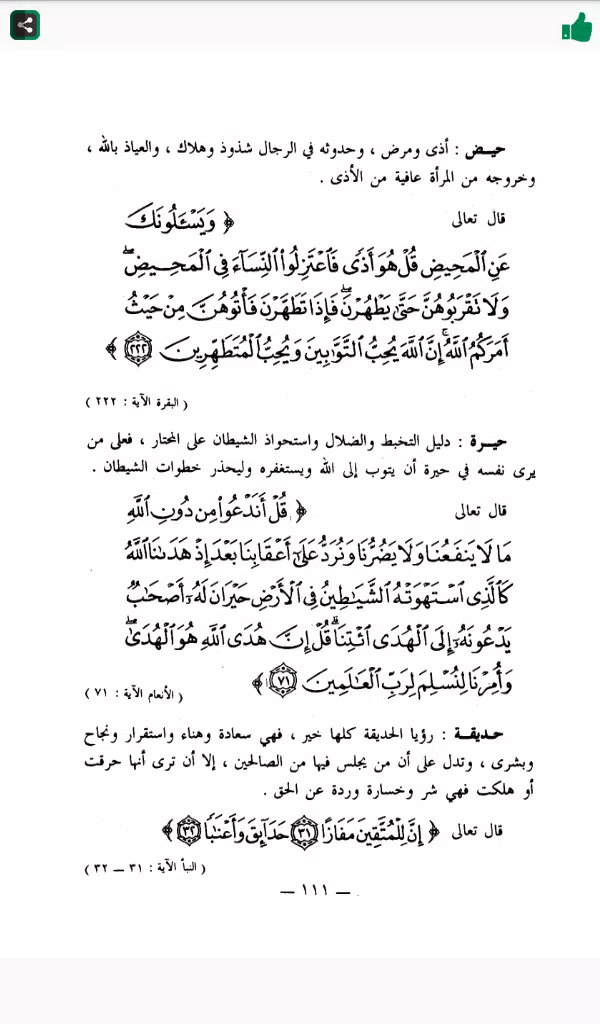 حيـض : أذى ومرض ، وحدوثه في الرجال شذوذ وهلاك ، والعياذ بالله ،
وخروجه من المرأة عافية من الأذى .
قال تعالى ﴿ وَيَسْـَٔلُونَكَ
عَنِ ٱلْمَحِيضِ قُلْ هُوَ أَذًى فَٱعْتَزِلُوا۟ ٱلنِّسَآءَ فِى ٱلْمَحِيضِ ۖ
وَلَا تَقْرَبُوهُنَّ حَتَّىٰ يَطْهُرْنَ ۖ فَإِذَا تَطَهَّرْنَ فَأْتُوهُنَّ مِنْ حَيْثُ
أَمَرَكُمُ ٱللَّهُ ۚ إِنَّ ٱللَّهَ يُحِبُّ ٱلتَّوَّٰبِينَ وَيُحِبُّ ٱلْمُتَطَهِّرِينَ ۝٢٢٢ ﴾
( البقرة الآية : ٢٢٢ )
حيـرة : دليل التخبط والضلال واستحواذ الشيطان على المحتار ، فعلى من
يرى نفسه في حيرة أن يتوب إلى الله ويستغفره وليحذر خطوات الشيطان .
قال تعالى ﴿ قُلْ أَنَدْعُوا۟ مِن دُونِ ٱللَّهِ
مَا لَا يَنفَعُنَا وَلَا يَضُرُّنَا وَنُرَدُّ عَلَىٰٓ أَعْقَابِنَا بَعْدَ إِذْ هَدَىٰنَا ٱللَّهُ
كَٱلَّذِى ٱسْتَهْوَتْهُ ٱلشَّيَٰطِينُ فِى ٱلْأَرْضِ حَيْرَانَ لَهُۥٓ أَصْحَٰبٌ
يَدْعُونَهُۥٓ إِلَى ٱلْهُدَى ٱئْتِنَا ۗ قُلْ إِنَّ هُدَى ٱللَّهِ هُوَ ٱلْهُدَىٰ ۖ
وَأُمِرْنَا لِنُسْلِمَ لِرَبِّ ٱلْعَٰلَمِينَ ۝٧١ ﴾ ( الأنعام الآية : ٧١ )
حديقـة : رؤيا الحديقة كلها خير ، فهي سعادة وهناء واستقرار ونجاح
وبشرى ، وتدل على أن من يجلس فيها من الصالحين ، إلا أن ترى أنها حرقت
أو هلكت فهي شر وخسارة وردة عن الحق .
قال تعالى ﴿ إِنَّ لِلْمُتَّقِينَ مَفَازًا ۝٣١ حَدَآئِقَ وَأَعْنَٰبًا ۝٣٢ ﴾
( النبأ الآية : ٣١ — ٣٢ )
— ١١١ —